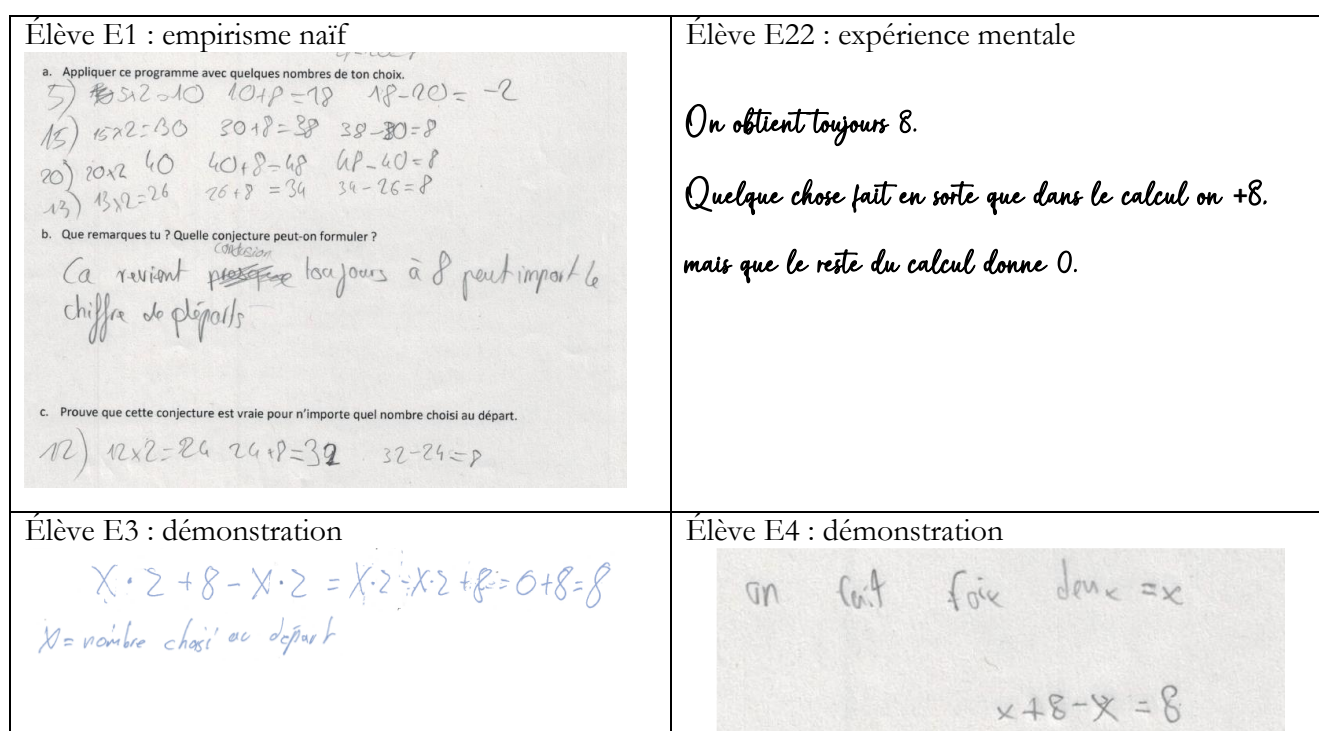 Élève E1 : empirisme naïf
a. Appliquer ce programme avec quelques nombres de ton choix.
5) 5x2=10 10+8=18 18-20= -2
15) 15x2=30 30+8=38 38-30=8
20) 20x2 40 40+8=48 48-40=8
13) 13x2=26 26+8=34 34-26=8
b. Que remarques tu ? Quelle conjecture peut-on formuler ?
Conclusion
Ca revient toujours à 8 peut import le
chiffre de départs
c. Prouve que cette conjecture est vraie pour n'importe quel nombre choisi au départ.
12) 12x2=24 24+8=32 32-24=8
Élève E22 : expérience mentale
On obtient toujours 8.
Quelque chose fait en sorte que dans le calcul on +8.
mais que le reste du calcul donne 0.
Élève E3 : démonstration
X · 2 + 8 - X · 2 = X·2 - X·2 + 8 = 0+8=8
X = nombre choisi au départ
Élève E4 : démonstration
on fait foix deux = x
x+8-x = 8